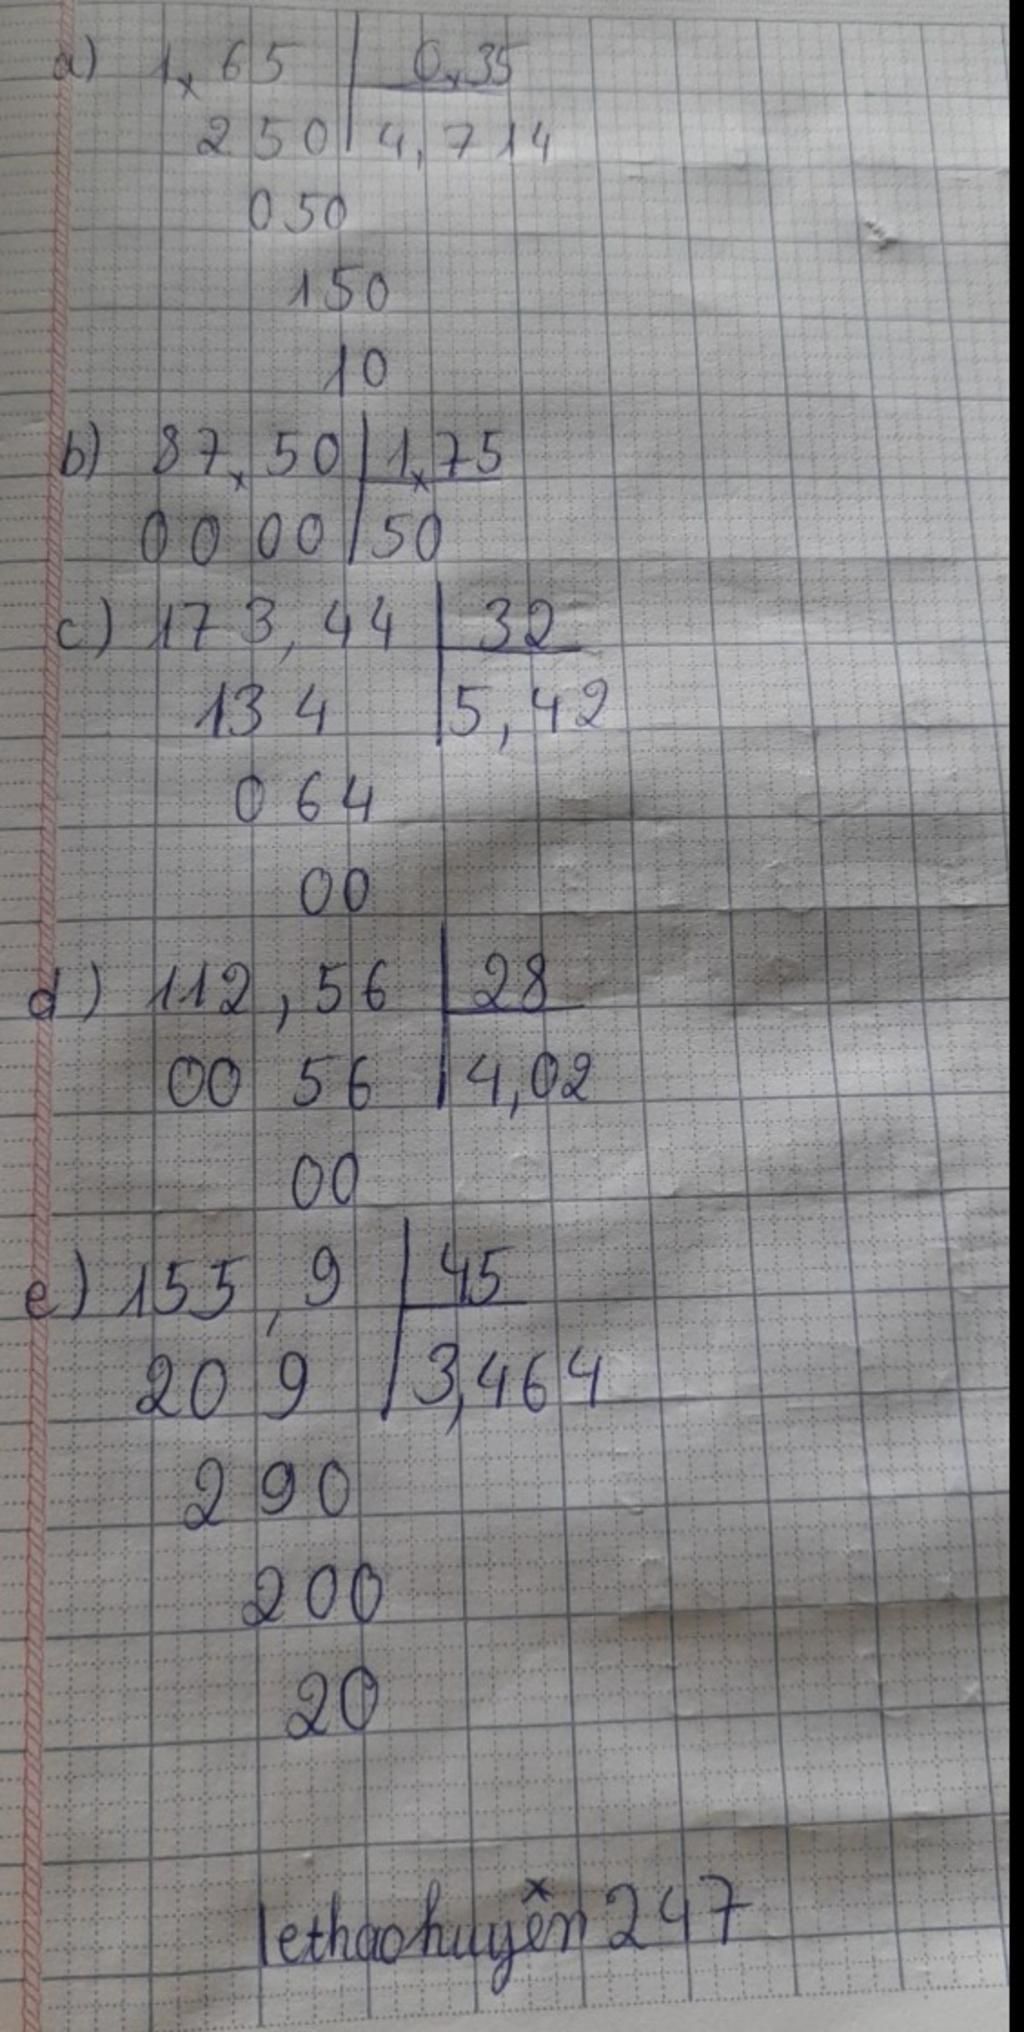 a) 1,65 | 0,35
250 | 4,714
050
150
10
b) 87,50 | 1,75
00 00 | 50
c) 173,44 | 32
13 4 | 5,42
0 64
00
d) 112,56 | 28
00 56 | 4,02
00
e) 155,9 | 45
20 9 | 3,464
2 90
200
20
lethaohuyền247